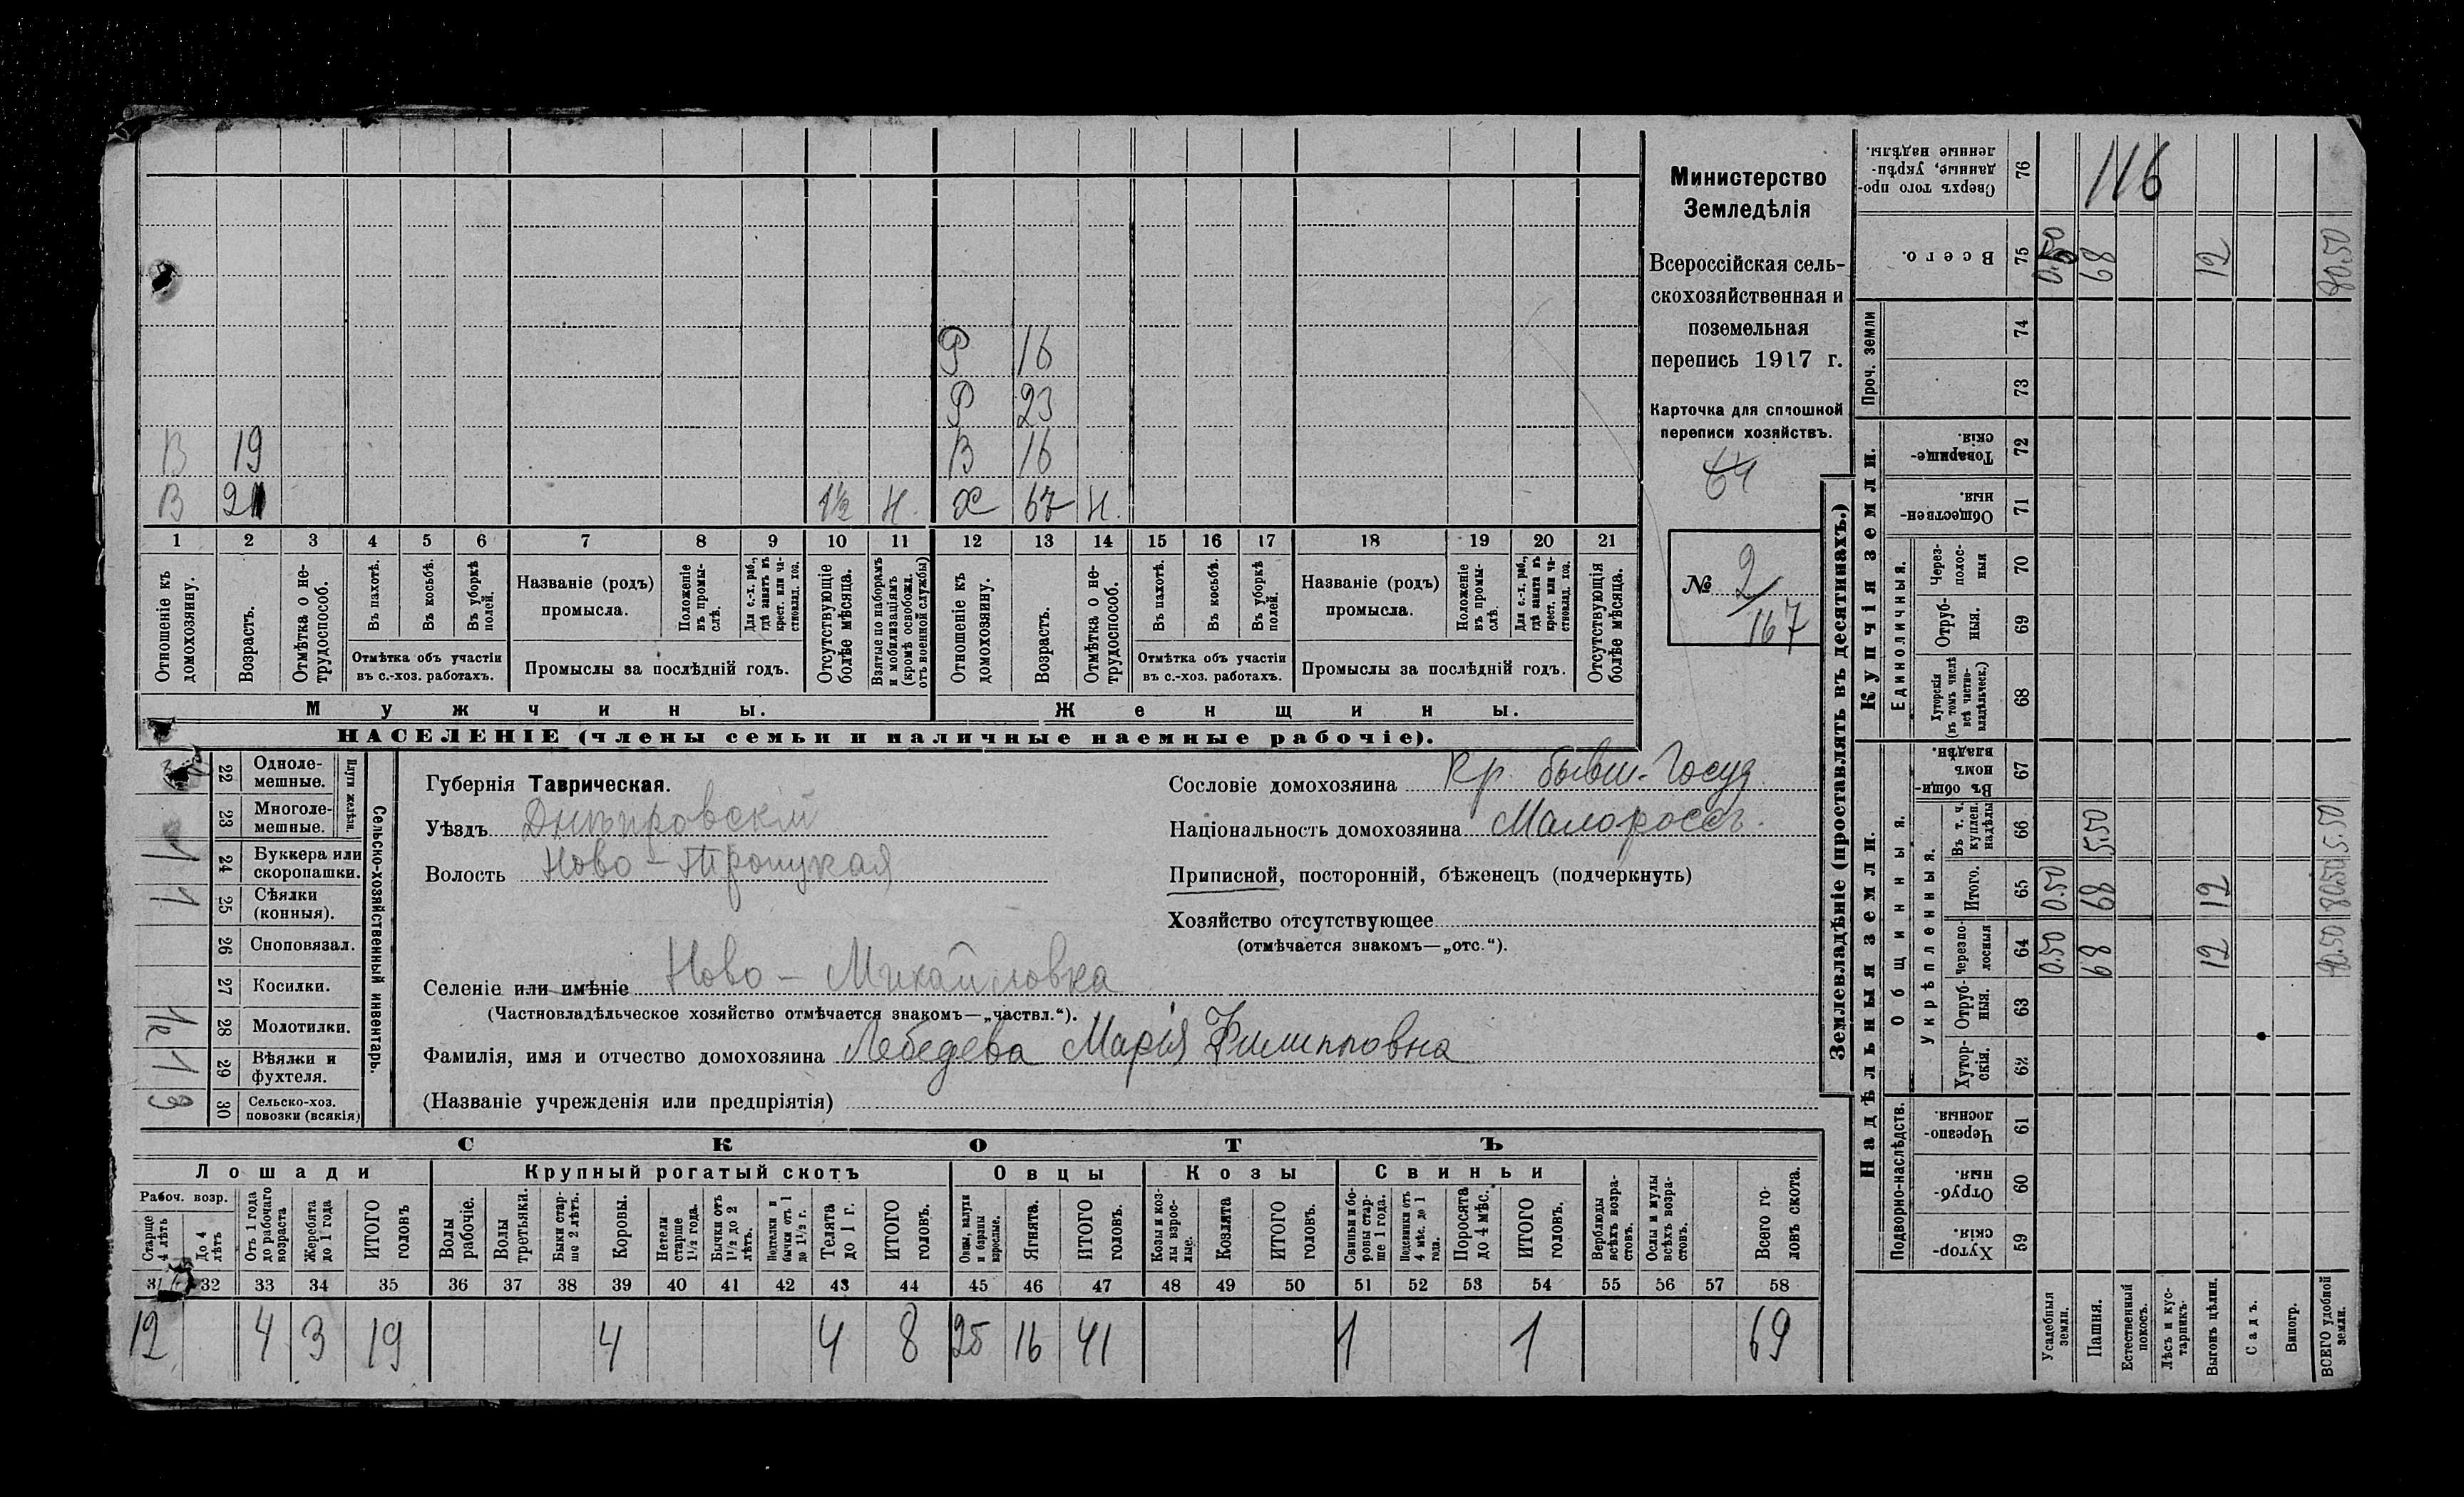 Министерство
Земледѣлія
Всероссійская сель-
скохозяйственная и
поземельная
перепись 1917 г.
Карточка для сплошной
переписи хозяйствъ.
64
№ 2/167
Р 16
Р 23
В 19 В 16
В 21 1½ Н. Х 67 Н.
1 2 3 4 5 6 7 8 9 10 11 12 13 14 15 16 17 18 19 20 21
Отношеніе къ домохозяину.
Возрастъ.
Отмѣтка о не-трудоспособ.
Въ пахотѣ.
Въ косьбѣ.
Въ уборкѣ полей.
Отмѣтка объ участіи
въ с.-хоз. работахъ.
Названіе (родъ)
промысла.
Положеніе въ промы-слѣ.
Для с.-х. раб., гдѣ занятъ въ крест. или ча-стновлад. хоз.
Промыслы за послѣдній годъ.
Отсутствующіе болѣе мѣсяца.
Взятые по наборамъ и мобилизаціямъ (кромѣ освобожд. отъ военной службы)
Отношеніе къ домохозяину.
Возрастъ.
Отмѣтка о не-трудоспособ.
Въ пахотѣ.
Въ косьбѣ.
Въ уборкѣ полей.
Отмѣтка объ участіи
въ с.-хоз. работахъ.
Названіе (родъ)
промысла.
Положеніе въ промы-слѣ.
Для с.-х. раб., гдѣ занята въ крест. или ча-стновлад. хоз.
Промыслы за послѣдній годъ.
Отсутствующія болѣе мѣсяца.
Мужчины. Женщины.
НАСЕЛЕНІЕ (члены семьи и наличные наемные рабочіе).
Сельско-хозяйственный инвентарь.
Плуги желѣзн.
22 Одноле-мешные.
23 Многоле-мешные.
1 24 Буккера или скоропашки.
1 25 Сѣялки (конныя).
26 Сноповязал.
27 Косилки.
1к 28 Молотилки.
1 29 Вѣялки и фухтеля.
3 30 Сельско-хоз. повозки (всякія)
Губернія Таврическая.
Уѣздъ Днѣпровскій
Волость Ново-Троицкая
Сословіе домохозяина Кр. бывш. Госуд
Національность домохозяина Малороссъ.
Приписной, посторонній, бѣженецъ (подчеркнуть)
Хозяйство отсутствующее
(отмѣчается знакомъ—„отс.“).
Селеніе или имѣніе Ново-Михайловка
(Частновладѣльческое хозяйство отмѣчается знакомъ—„частвл.“).
Фамилія, имя и отчество домохозяина Лебедева Марія Филипповна
(Названіе учрежденія или предпріятія)
СКОТЪ
Лошади Крупный рогатый скотъ Овцы Козы Свиньи
Рабоч. возр.
Старше 4 лѣтъ
До 4 лѣтъ
Отъ 1 года до рабочаго возраста
Жеребята до 1 года
ИТОГО головъ
Волы рабочіе.
Волы третьяки.
Быки стар-ше 2 лѣтъ.
Коровы.
Нетели старше 1½ года.
Бычки отъ 1½ до 2 лѣтъ.
Нетелки и бычки отъ 1 до 1½ г.
Телята до 1 г.
ИТОГО головъ.
Овцы, валухи и бараны взрослые.
Ягнята.
ИТОГО головъ.
Козы и коз-лы взрос-лые.
Козлята
ИТОГО головъ.
Свиньи и бо-ровы стар-ше 1 года.
Подсвинки отъ 4 мѣс. до 1 года.
Поросята до 4 мѣс.
ИТОГО головъ.
Верблюды всѣхъ возра-стовъ.
Ослы и мулы всѣхъ возра-стовъ.
Всего го-ловъ скота.
31 32 33 34 35 36 37 38 39 40 41 42 43 44 45 46 47 48 49 50 51 52 53 54 55 56 57 58
12 4 3 19 4 4 8 25 16 41 1 1 69
Землевладѣніе (проставлять въ десятинахъ.)
Надѣльныя земли. Купчія земли. Проч. земли
Подворно-наслѣдств.
Общинныя.
Укрѣпленныя.
Единоличныя.
Хутор-скія. 59
Отруб-ныя. 60
Черезпо-лосныя. 61
Хутор-скія. 62
Отруб-ныя. 63
Черезпо-лосныя 64
Итого. 65
Въ т. ч. куплен. надѣлы 66
Въ общин-номъ владѣн. 67
Хуторскія (въ томъ числѣ всѣ частно-владѣльческ.) 68
Отруб-ныя. 69
Через-полос-ныя 70
Обществен-ныя. 71
Товарище-скія. 72
73
74
Всего. 75
Сверхъ того про-данные, укрѣп-ленные надѣлы. 76
Усадебныя земли. 0.50 0.50 0.50
Пашня. 68 68 5.50 68 116
Естественный покосъ.
Лѣсъ и кус-тарникъ.
Выгонъ цѣлин. 12 12 12
Садъ.
Виногр.
ВСЕГО удобной земли. 80.50 80.50 5.50 80.50